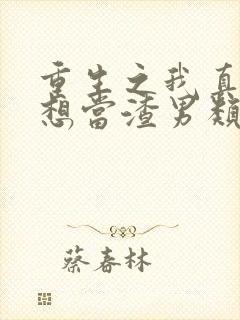 重生之我真
想當渣男類
蔡春林